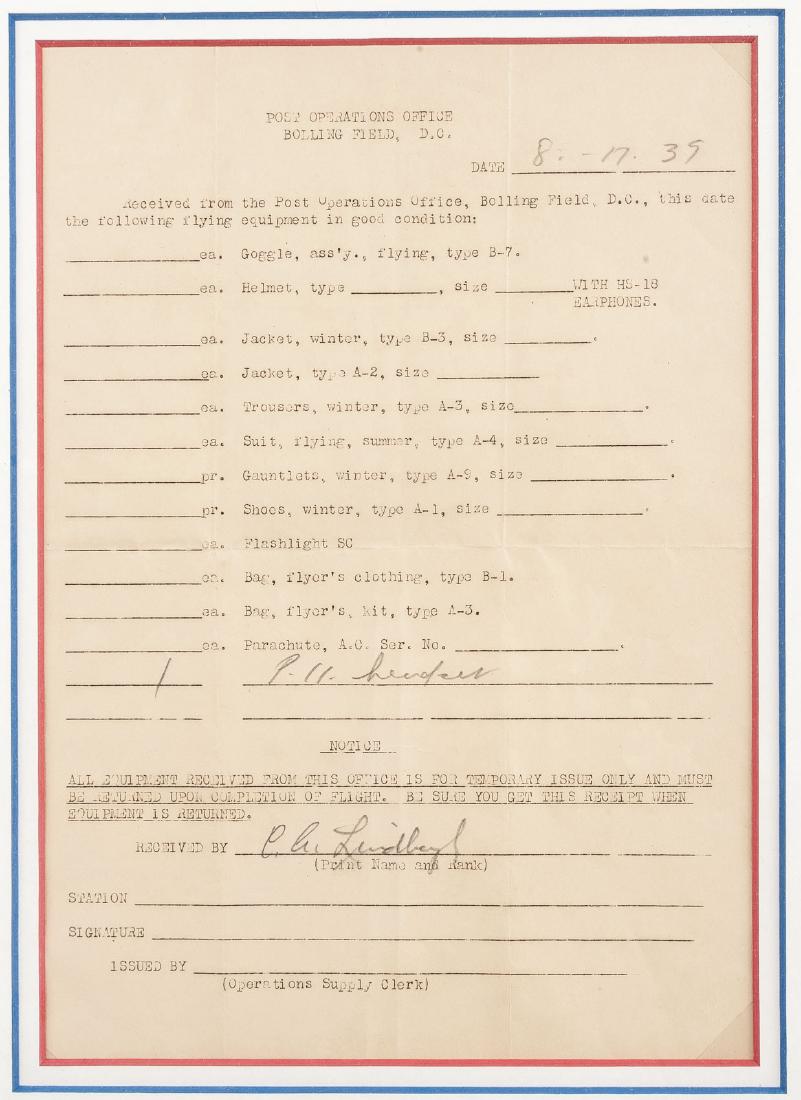 POST OPERATIONS OFFICE
BOLLING FIELD, D.C.
DATE 8. -17. 39
Received from the Post Operations Office, Bolling Field, D.C., this date
the following flying equipment in good condition:
ea. Goggle, ass'y., flying, type B-7.
ea. Helmet, type , size WITH HS-18
EARPHONES.
ea. Jacket, winter, type B-3, size .
ea. Jacket, type A-2, size
ea. Trousers, winter, type A-3, size .
ea. Suit, flying, summer, type A-4, size .
pr. Gauntlets, winter, type A-9, size .
pr. Shoes, winter, type A-1, size .
ea. Flashlight SC
ea. Bag, flyer's clothing, type B-1.
ea. Bag, flyer's, kit, type A-3.
ea. Parachute, A.C. Ser. No. .
1 headset
NOTICE
ALL EQUIPMENT RECEIVED FROM THIS OFFICE IS FOR TEMPORARY ISSUE ONLY AND MUST
BE RETURNED UPON COMPLETION OF FLIGHT. BE SURE YOU GET THIS RECEIPT WHEN
EQUIPMENT IS RETURNED.
RECEIVED BY C. A. Lindbergh
(Print Name and Rank)
STATION
SIGNATURE
ISSUED BY
(Operations Supply Clerk)